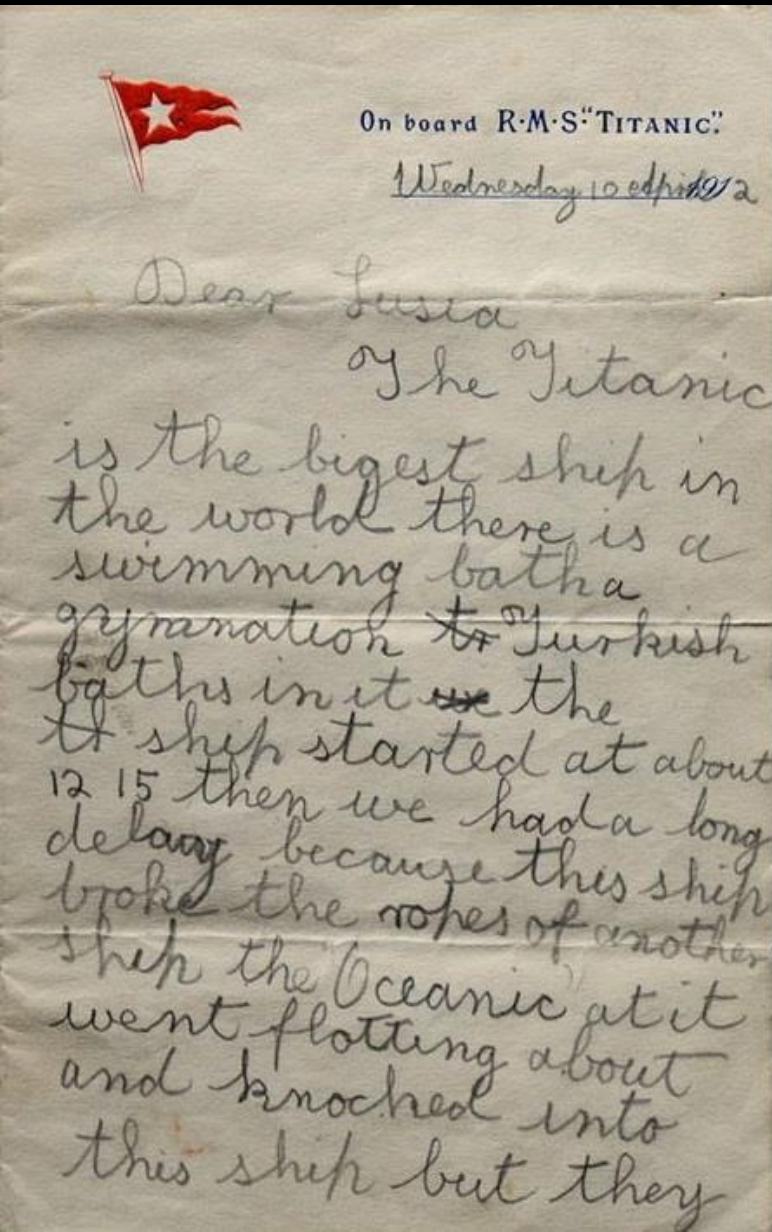 On board R·M·S "TITANIC".
Wednesday 10 April 1912
Dear Lusia
The Titanic
is the bigest ship in
the world there is a
swimming bath a
gymnation tr Turkish
baths in it the
tt ship started at about
12 15 then we had a long
delay because this ship
broke the ropes of another
ship the Oceanic at it
went flotting about
and knocked into
this ship but they